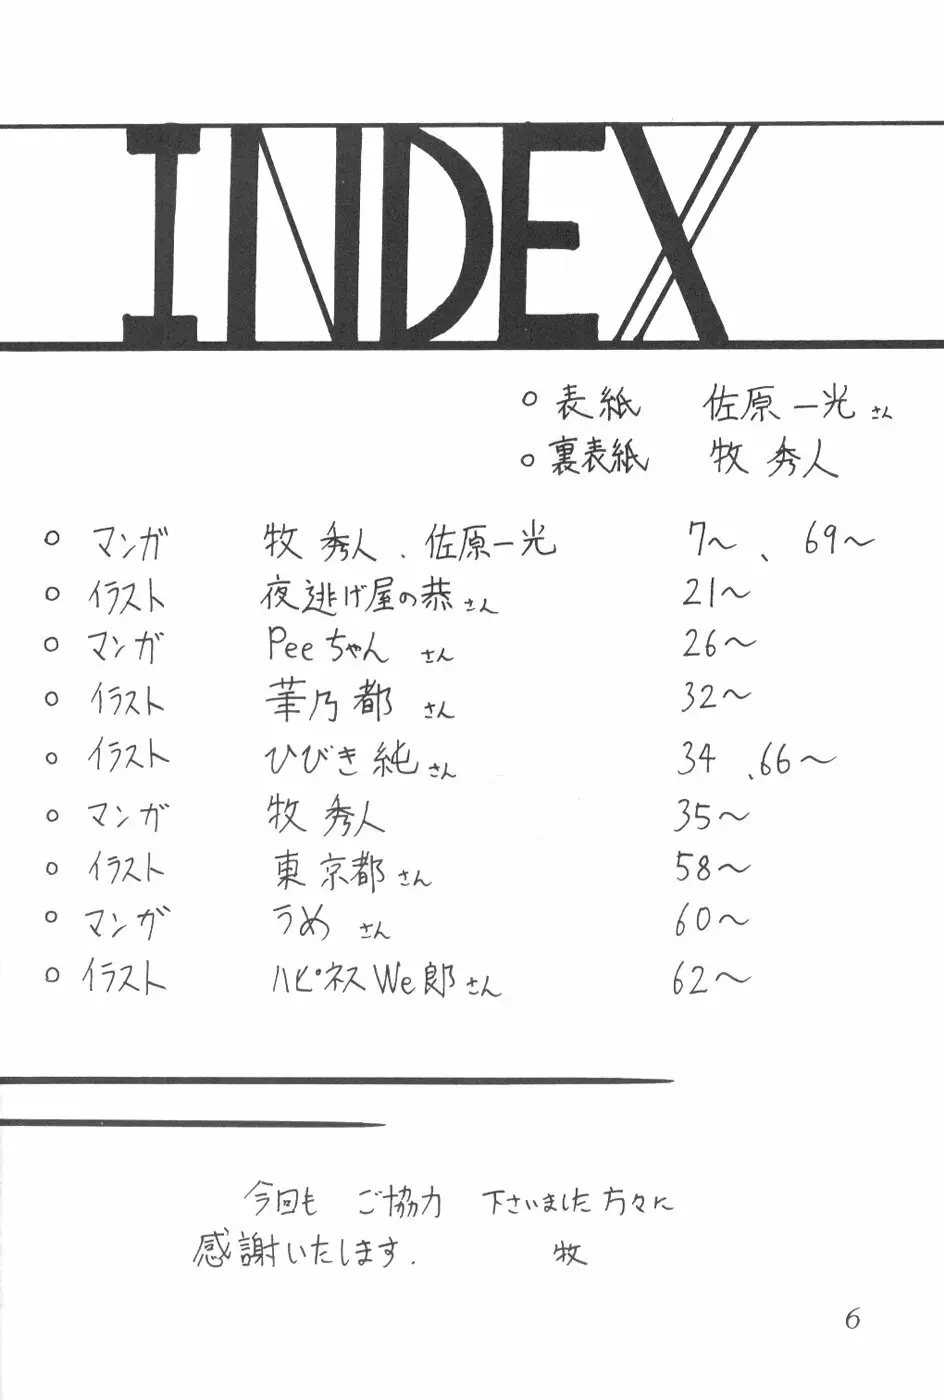 INDEX
○ 表紙 佐原一光さん
○ 裏表紙 牧 秀人
○ マンガ 牧 秀人、佐原一光 7〜、69〜
○ イラスト 夜逃げ屋の恭さん 21〜
○ マンガ Peeちゃん さん 26〜
○ イラスト 乃都 さん 32〜
○ イラスト ひびき純さん 34、66〜
○ マンガ 牧 秀人 35〜
○ イラスト 東京都さん 58〜
○ マンガ うめ さん 60〜
○ イラスト ハピネスWe郎さん 62〜
今回も ご協力 下さいました方々に
感謝いたします. 牧
6